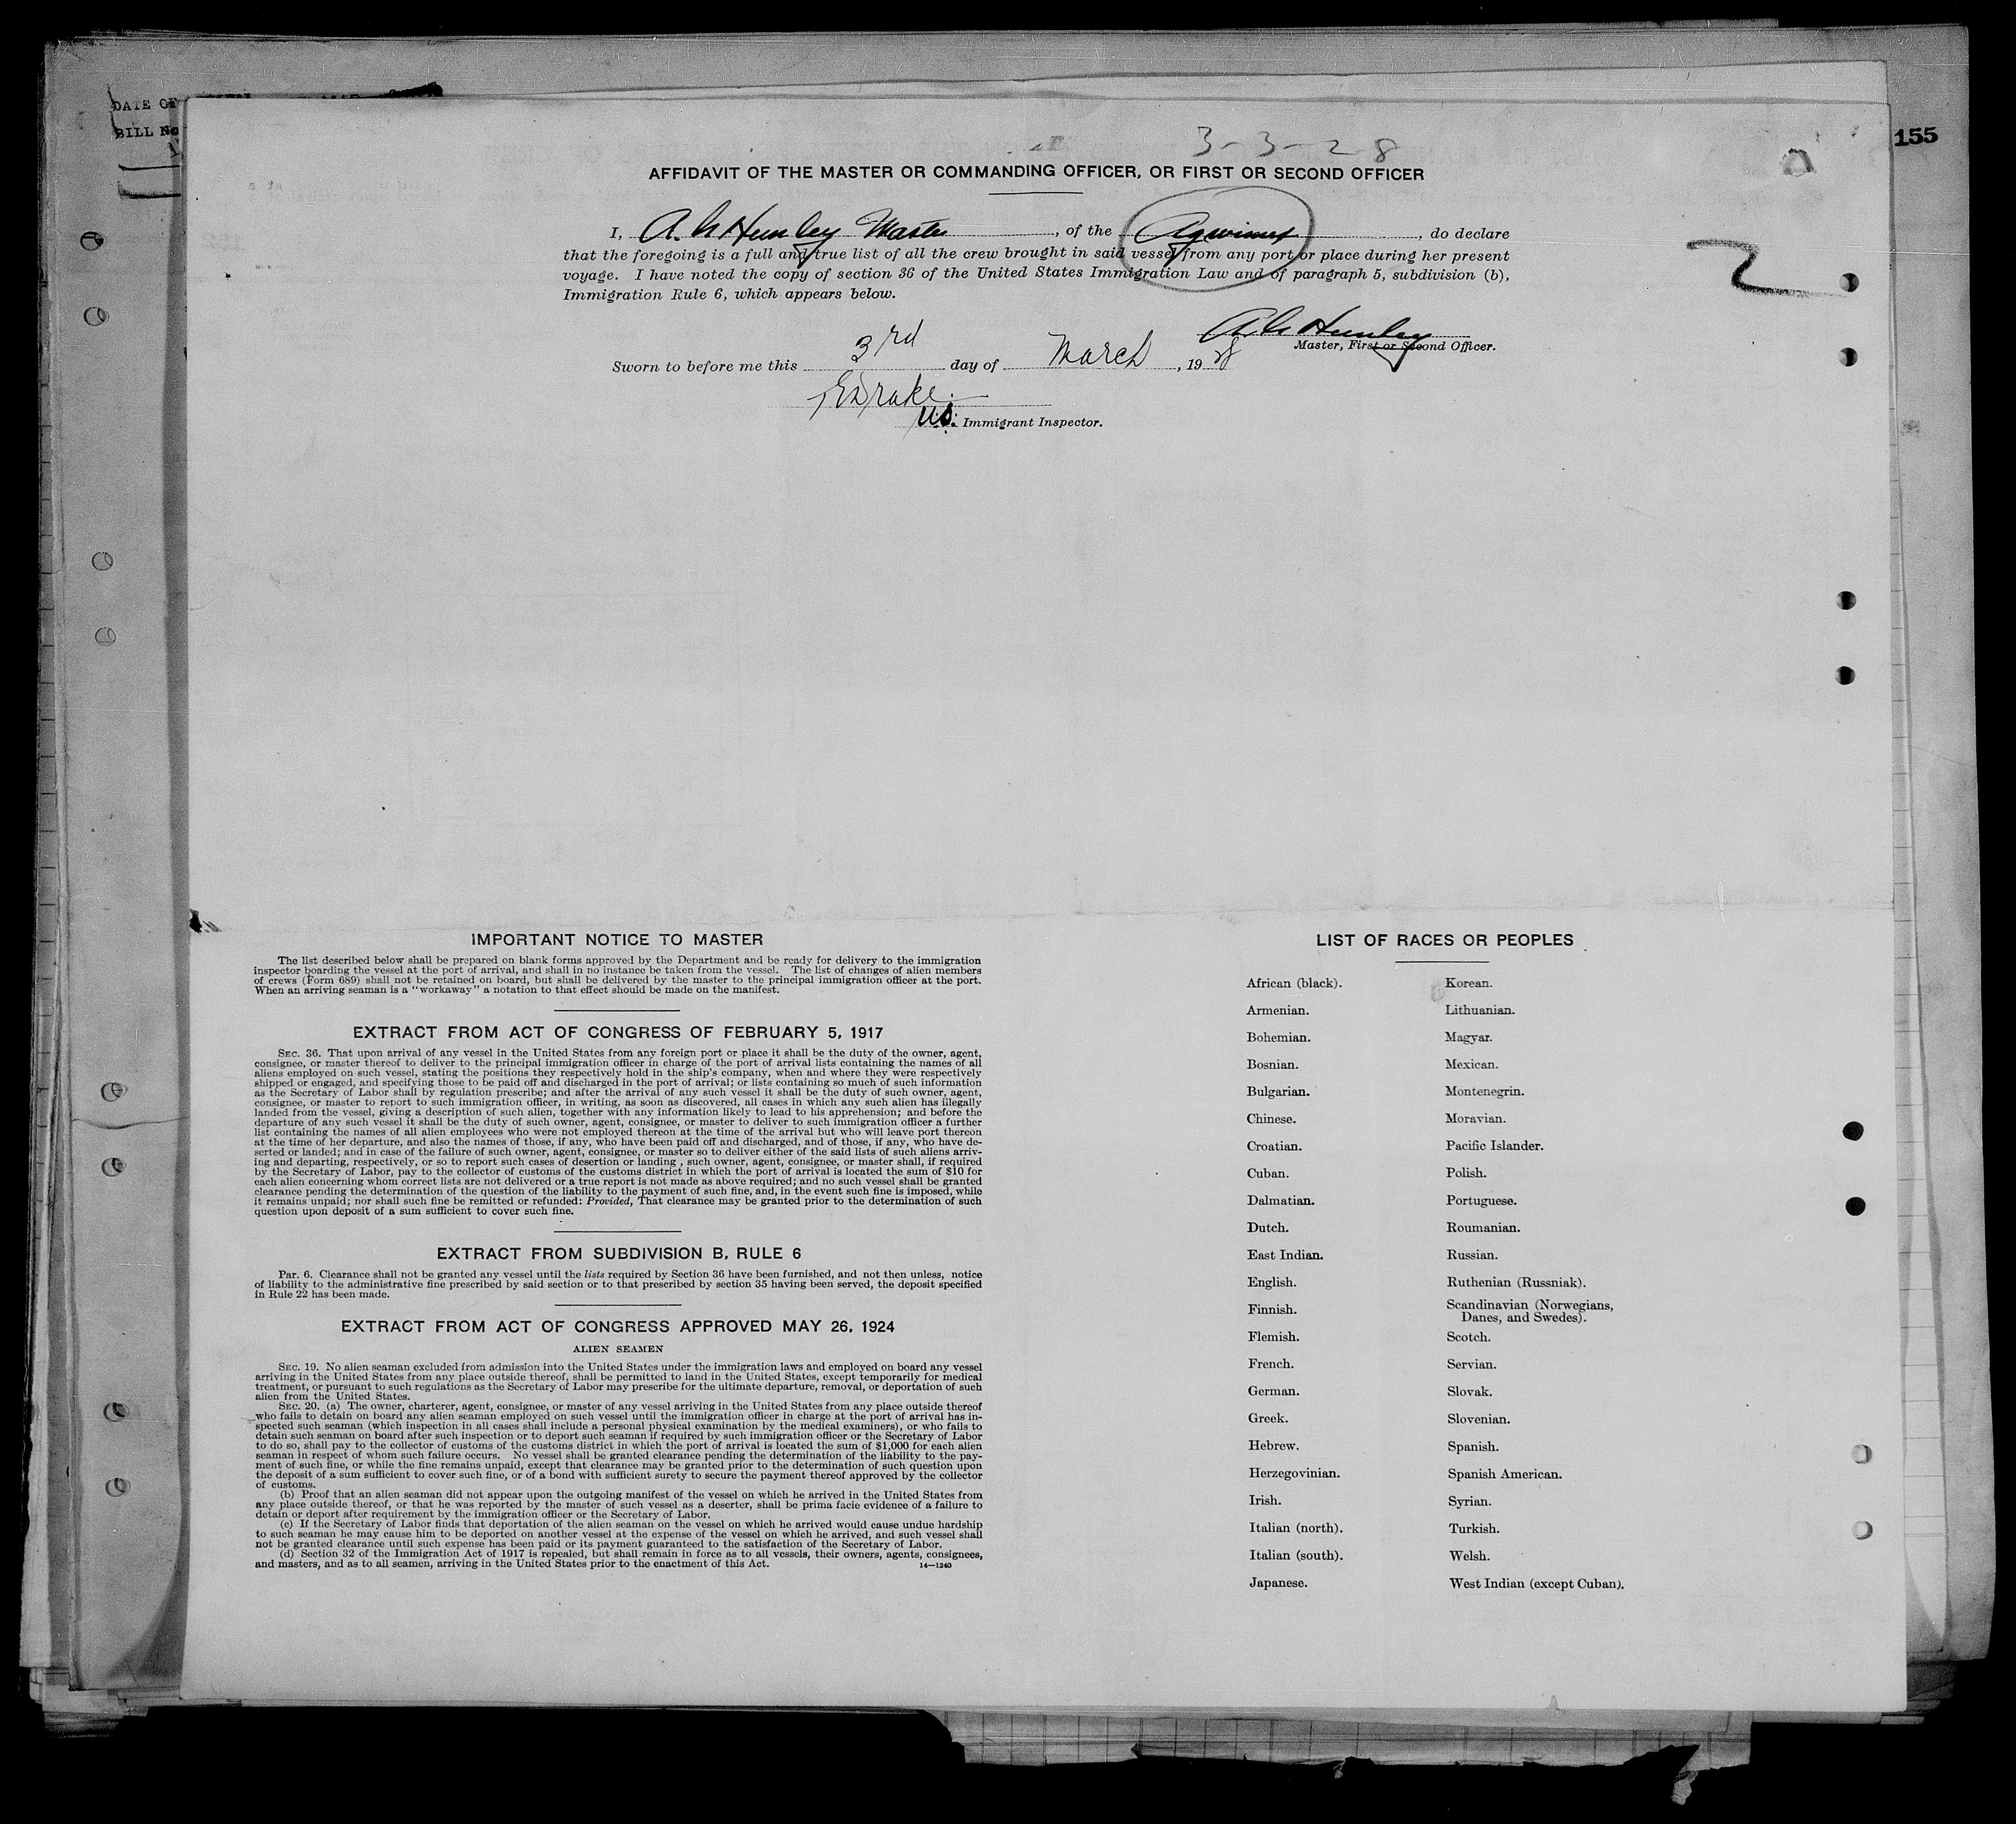 DATE OF
BILL No
155
3-3-28
AFFIDAVIT OF THE MASTER OR COMMANDING OFFICER, OR FIRST OR SECOND OFFICER
I, Master, of the , do declare
that the foregoing is a full and true list of all the crew brought in said vessel from any port or place during her present
voyage. I have noted the copy of section 36 of the United States Immigration Law and of paragraph 5, subdivision (b),
Immigration Rule 6, which appears below.
2
Master, First or Second Officer.
Sworn to before me this 3rd day of March, 1928
U.S. Immigrant Inspector.
IMPORTANT NOTICE TO MASTER
The list described below shall be prepared on blank forms approved by the Department and be ready for delivery to the immigration
inspector boarding the vessel at the port of arrival, and shall in no instance be taken from the vessel. The list of changes of alien members
of crews (Form 689) shall not be retained on board, but shall be delivered by the master to the principal immigration officer at the port.
When an arriving seaman is a "workaway" a notation to that effect should be made on the manifest.
EXTRACT FROM ACT OF CONGRESS OF FEBRUARY 5, 1917
SEC. 36. That upon arrival of any vessel in the United States from any foreign port or place it shall be the duty of the owner, agent,
consignee, or master thereof to deliver to the principal immigration officer in charge of the port of arrival lists containing the names of all
aliens employed on such vessel, stating the positions they respectively hold in the ship's company, when and where they were respectively
shipped or engaged, and specifying those to be paid off and discharged in the port of arrival; or lists containing so much of such information
as the Secretary of Labor shall by regulation prescribe; and after the arrival of any such vessel it shall be the duty of such owner, agent,
consignee, or master to report to such immigration officer, in writing, as soon as discovered, all cases in which any such alien has illegally
landed from the vessel, giving a description of such alien, together with any information likely to lead to his apprehension; and before the
departure of any such vessel it shall be the duty of such owner, agent, consignee, or master to deliver to such immigration officer a further
list containing the names of all alien employees who were not employed thereon at the time of the arrival but who will leave port thereon
at the time of her departure, and also the names of those, if any, who have been paid off and discharged, and of those, if any, who have de-
serted or landed; and in case of the failure of such owner, agent, consignee, or master so to deliver either of the said lists of such aliens arriv-
ing and departing, respectively, or so to report such cases of desertion or landing , such owner, agent, consignee, or master shall, if required
by the Secretary of Labor, pay to the collector of customs of the customs district in which the port of arrival is located the sum of $10 for
each alien concerning whom correct lists are not delivered or a true report is not made as above required; and no such vessel shall be granted
clearance pending the determination of the question of the liability to the payment of such fine, and, in the event such fine is imposed, while
it remains unpaid; nor shall such fine be remitted or refunded: Provided, That clearance may be granted prior to the determination of such
question upon deposit of a sum sufficient to cover such fine.
EXTRACT FROM SUBDIVISION B, RULE 6
Par. 6. Clearance shall not be granted any vessel until the lists required by Section 36 have been furnished, and not then unless, notice
of liability to the administrative fine prescribed by said section or to that prescribed by section 35 having been served, the deposit specified
in Rule 22 has been made.
EXTRACT FROM ACT OF CONGRESS APPROVED MAY 26, 1924
ALIEN SEAMEN
SEC. 19. No alien seaman excluded from admission into the United States under the immigration laws and employed on board any vessel
arriving in the United States from any place outside thereof, shall be permitted to land in the United States, except temporarily for medical
treatment, or pursuant to such regulations as the Secretary of Labor may prescribe for the ultimate departure, removal, or deportation of such
alien from the United States.
SEC. 20. (a) The owner, charterer, agent, consignee, or master of any vessel arriving in the United States from any place outside thereof
who fails to detain on board any alien seaman employed on such vessel until the immigration officer in charge at the port of arrival has in-
spected such seaman (which inspection in all cases shall include a personal physical examination by the medical examiners), or who fails to
detain such seaman on board after such inspection or to deport such seaman if required by such immigration officer or the Secretary of Labor
to do so, shall pay to the collector of customs of the customs district in which the port of arrival is located the sum of $1,000 for each alien
seaman in respect of whom such failure occurs. No vessel shall be granted clearance pending the determination of the liability to the pay-
ment of such fine, or while the fine remains unpaid, except that clearance may be granted prior to the determination of such question upon
the deposit of a sum sufficient to cover such fine, or of a bond with sufficient surety to secure the payment thereof approved by the collector
of customs.
(b) Proof that an alien seaman did not appear upon the outgoing manifest of the vessel on which he arrived in the United States from
any place outside thereof, or that he was reported by the master of such vessel as a deserter, shall be prima facie evidence of a failure to
detain or deport after requirement by the immigration officer or the Secretary of Labor.
(c) If the Secretary of Labor finds that deportation of the alien seaman on the vessel on which he arrived would cause undue hardship
to such seaman he may cause him to be deported on another vessel at the expense of the vessel on which he arrived, and such vessel shall
not be granted clearance until such expense has been paid or its payment guaranteed to the satisfaction of the Secretary of Labor.
(d) Section 32 of the Immigration Act of 1917 is repealed, but shall remain in force as to all vessels, their owners, agents, consignees,
and masters, and as to all seamen, arriving in the United States prior to the enactment of this Act.
14—1240
LIST OF RACES OR PEOPLES
African (black).
Armenian.
Bohemian.
Bosnian.
Bulgarian.
Chinese.
Croatian.
Cuban.
Dalmatian.
Dutch.
East Indian.
English.
Finnish.
Flemish.
French.
German.
Greek.
Hebrew.
Herzegovinian.
Irish.
Italian (north).
Italian (south).
Japanese.
Korean.
Lithuanian.
Magyar.
Mexican.
Montenegrin.
Moravian.
Pacific Islander.
Polish.
Portuguese.
Roumanian.
Russian.
Ruthenian (Russniak).
Scandinavian (Norwegians,
Danes, and Swedes).
Scotch.
Servian.
Slovak.
Slovenian.
Spanish.
Spanish American.
Syrian.
Turkish.
Welsh.
West Indian (except Cuban).